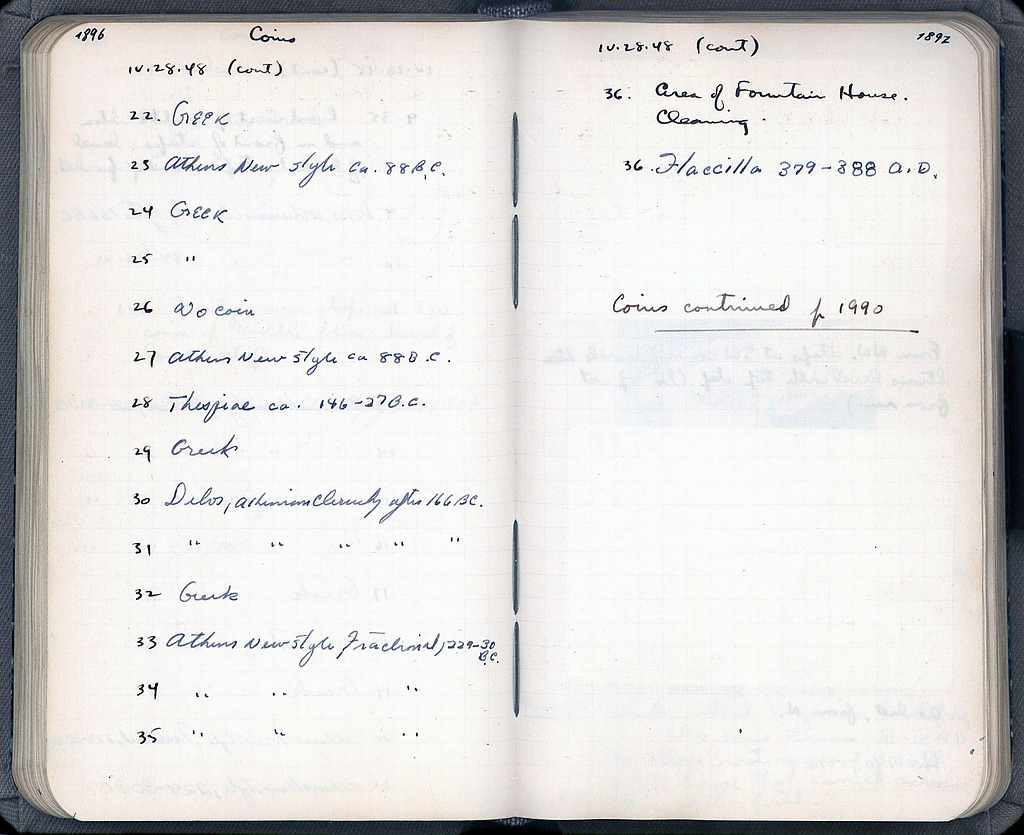 1896
Coins
IV.28.48 (cont)
22. Greek
23 Athens New Style ca. 88 B.C.
24 Greek
25 "
26 No coin
27 Athens New Style ca 88 B.C.
28 Thespiae ca. 146-27 B.C.
29 Greek
30 Delos, Athenian Cleruchy after 166 B.C.
31 " " " " "
32 Greek
33 Athens New Style, Fractional, 229-30
B.C.
34 " " "
35 " " "
1897
IV.28.48 (cont)
36. Area of Fountain House.
Cleaning.
36. Flaccilla 379-388 A.D.
Coins continued p 1990